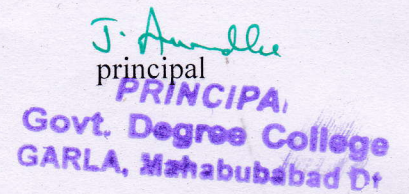 principal
PRINCIPA
Govt. Degree College
GARLA, Mahabubabad Dt